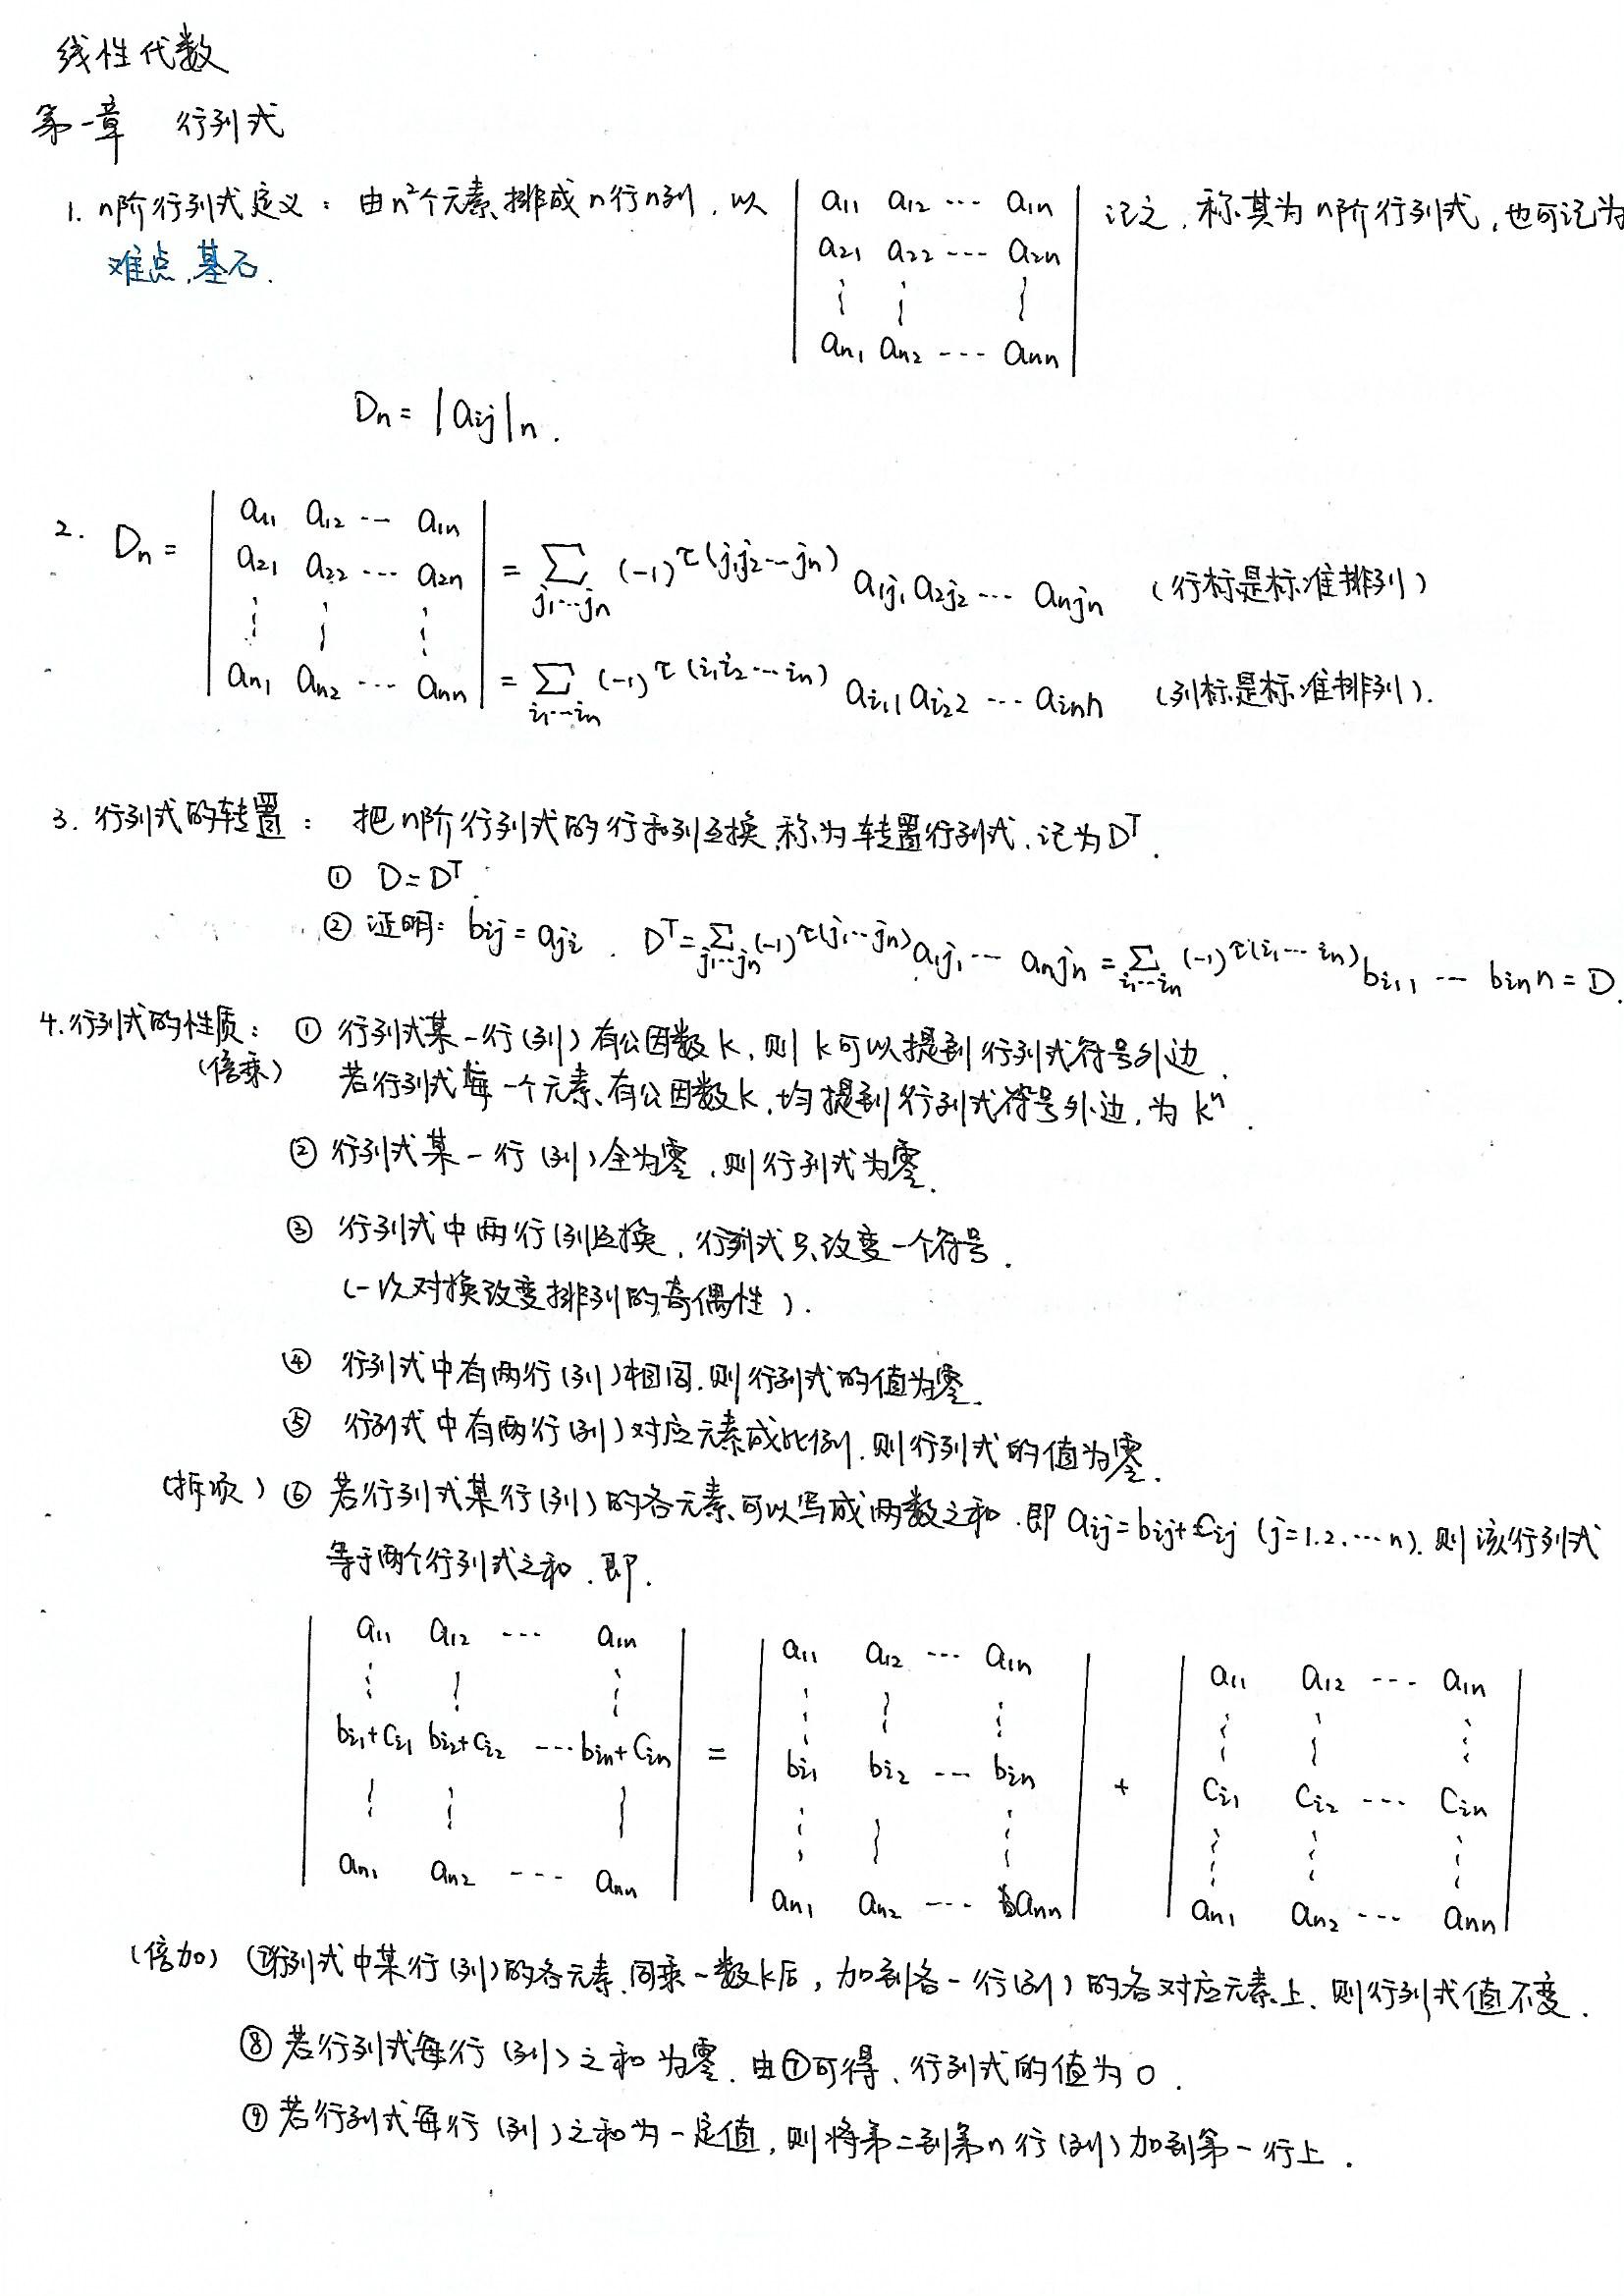 线性代数
第一章 行列式
1. n阶行列式定义：由n²个元素排成n行n列，以 | a11 a12 ··· a1n | 记之，称其为n阶行列式，也可记为
难点，基石. | a21 a22 ··· a2n |
| ⋮ ⋮ ⋮ |
| an1 an2 ··· ann |
Dn = |aij|n.
2. Dn = | a11 a12 ··· a1n |
| a21 a22 ··· a2n | = ∑_{j1···jn} (-1)^{τ(j1j2···jn)} a1j1 a2j2 ··· anjn （行标是标准排列）
| ⋮ ⋮ ⋮ |
| an1 an2 ··· ann | = ∑_{i1···in} (-1)^{τ(i1i2···in)} ai11 ai22 ··· ainn （列标是标准排列）.
3. 行列式的转置： 把n阶行列式的行和列互换，称为转置行列式，记为Dᵀ.
① D=Dᵀ.
② 证明：bij = aji . Dᵀ = ∑_{j1···jn} (-1)^{τ(j1···jn)} a1j1 ··· anjn = ∑_{i1···in} (-1)^{τ(i1···in)} bi11 ··· binn = D.
4. 行列式的性质： ① 行列式某一行(列)有公因数k，则k可以提到行列式符号外边.
（倍乘） 若行列式每一个元素有公因数k，均提到行列式符号外边，为kⁿ.
② 行列式某一行(列)全为零，则行列式为零.
③ 行列式中两行(列)互换，行列式只改变一个符号.
(一次对换改变排列的奇偶性).
④ 行列式中有两行(列)相同，则行列式的值为零.
⑤ 行列式中有两行(列)对应元素成比例，则行列式的值为零.
(拆项) ⑥ 若行列式某行(列)的各元素可以写成两数之和，即 aij=bij+cij (j=1.2.···n). 则该行列式
等于两个行列式之和，即.
| a11 a12 ··· a1n | | a11 a12 ··· a1n | | a11 a12 ··· a1n |
| ⋮ ⋮ ⋮ | | ⋮ ⋮ ⋮ | | ⋮ ⋮ ⋮ |
| bi1+ci1 bi2+ci2 ··· bin+cin | = | bi1 bi2 ··· bin | + | ci1 ci2 ··· cin |
| ⋮ ⋮ ⋮ | | ⋮ ⋮ ⋮ | | ⋮ ⋮ ⋮ |
| an1 an2 ··· ann | | an1 an2 ··· ann | | an1 an2 ··· ann |
(倍加) ⑦行列式中某行(列)的各元素同乘一数k后，加到各一行(列)的各对应元素上，则行列式值不变.
⑧ 若行列式每行(列)之和为零，由⑦可得，行列式的值为0.
⑨ 若行列式每行(列)之和为一定值，则将第二到第n行(列)加到第一行上.